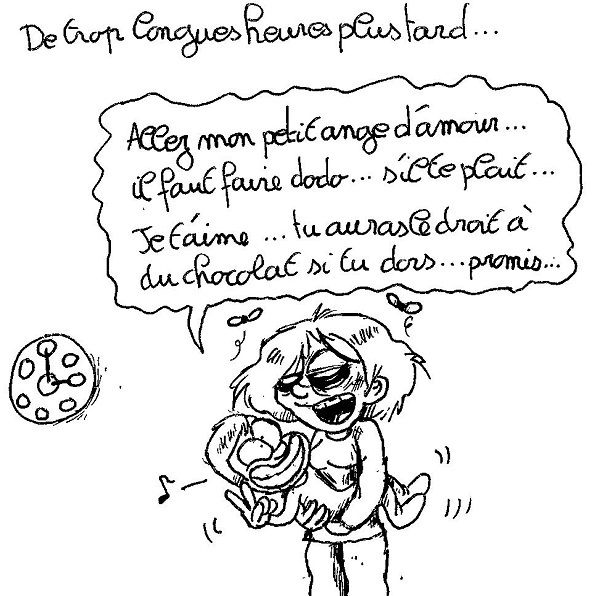 De trop longues heures plus tard...
Allez mon petit ange d'amour...
il faut faire dodo... s'il te plait...
Je t'aime... tu auras le droit à
du chocolat si tu dors... promis...